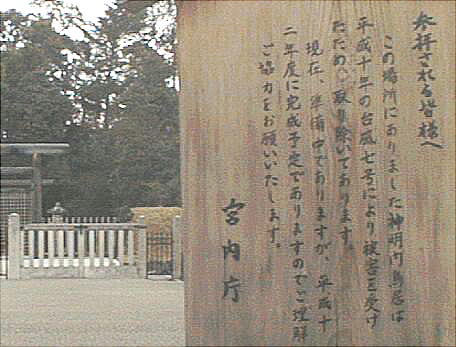 参拝される皆様へ
この場所にありました神明門鳥居は
平成十年の台風七号により被害を受け
たため、取り除いてあります。
現在、準備中でありますが、平成十
二年度に完成予定でありますのでご理解
ご協力をお願いいたします。
宮内庁